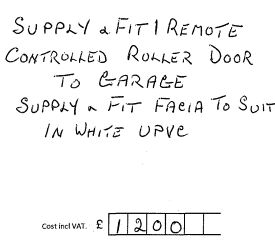 SUPPLY & FIT 1 REMOTE
CONTROLLED ROLLER DOOR
TO GARAGE
SUPPLY & FIT FACIA TO SUIT
IN WHITE UPVC
Cost incl VAT. £ 1200